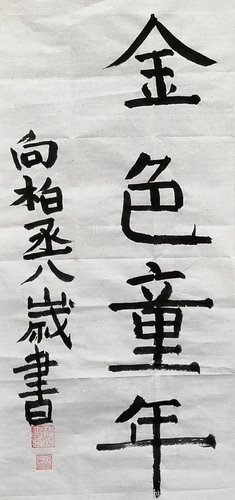 金色童年
向柏丞八歲書